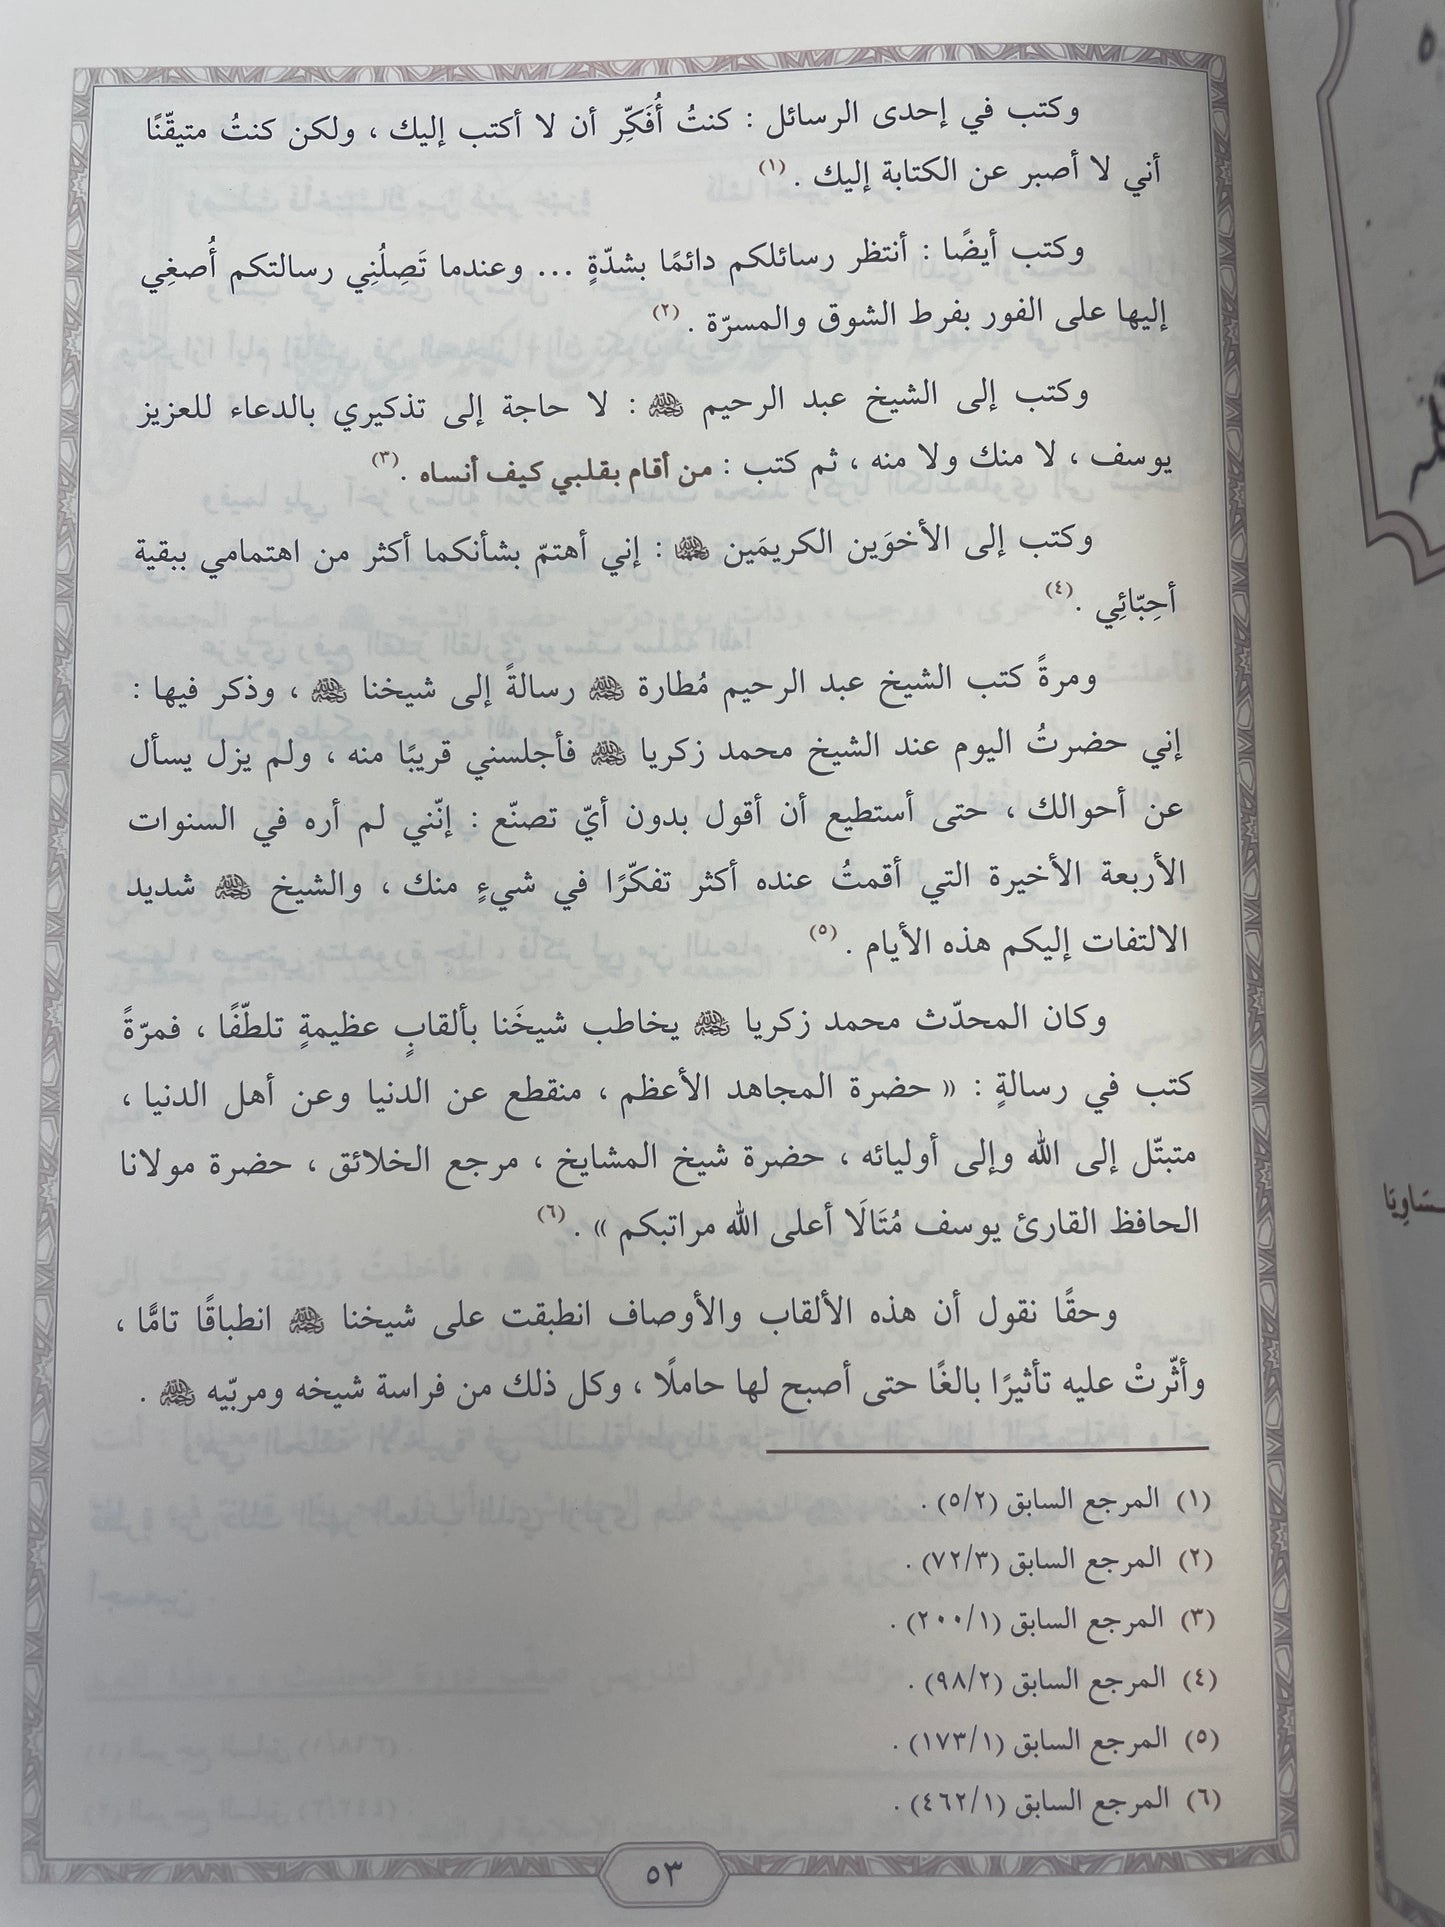 وكتب في إحدى الرسائل : كنتُ أُفَكِّر أن لا أكتب إليك ، ولكن كنتُ متيقّنًا
أني لا أصبر عن الكتابة إليك . (١)
وكتب أيضًا : أنتظر رسائلكم دائمًا بشدّةٍ ... وعندما تَصِلُنِي رسالتكم أُصغِي
إليها على الفور بفرط الشوق والمسرّة . (٢)
وكتب إلى الشيخ عبد الرحيم رحمه الله : لا حاجة إلى تذكيري بالدعاء للعزيز
يوسف ، لا منك ولا منه ، ثم كتب : من أقام بقلبي كيف أنساه . (٣)
وكتب إلى الأخوَين الكريمَين رحمهما الله : إني أهتمّ بشأنكما أكثر من اهتمامي ببقية
أحِبّائِي . (٤)
ومرةً كتب الشيخ عبد الرحيم مُطارة رحمه الله رسالةً إلى شيخنا رحمه الله ، وذكر فيها :
إني حضرتُ اليوم عند الشيخ محمد زكريا رحمه الله فأجلسني قريبًا منه ، ولم يزل يسأل
عن أحوالك ، حتى أستطيع أن أقول بدون أيّ تصنّع : إنّني لم أره في السنوات
الأربعة الأخيرة التي أقمتُ عنده أكثر تفكّرًا في شيءٍ منك ، والشيخ رحمه الله شديد
الالتفات إليكم هذه الأيام . (٥)
وكان المحدّث محمد زكريا رحمه الله يخاطب شيخَنا بألقابٍ عظيمةٍ تلطّفًا ، فمرّةً
كتب في رسالةٍ : « حضرة المجاهد الأعظم ، منقطع عن الدنيا وعن أهل الدنيا ،
متبتّل إلى الله وإلى أوليائه ، حضرة شيخ المشايخ ، مرجع الخلائق ، حضرة مولانا
الحافظ القارئ يوسف مُتَالَا أعلى الله مراتبكم » . (٦)
وحقًا نقول أن هذه الألقاب والأوصاف انطبقت على شيخنا رحمه الله انطباقًا تامًّا ،
وأثّرتْ عليه تأثيرًا بالغًا حتى أصبح لها حاملًا ، وكل ذلك من فراسة شيخه ومربّيه رحمه الله .
(١) المرجع السابق (٥/٢) .
(٢) المرجع السابق (٧٢/٣) .
(٣) المرجع السابق (٢٠٠/١) .
(٤) المرجع السابق (٩٨/٢) .
(٥) المرجع السابق (١٧٣/١) .
(٦) المرجع السابق (٤٦٢/١) .
٥٣